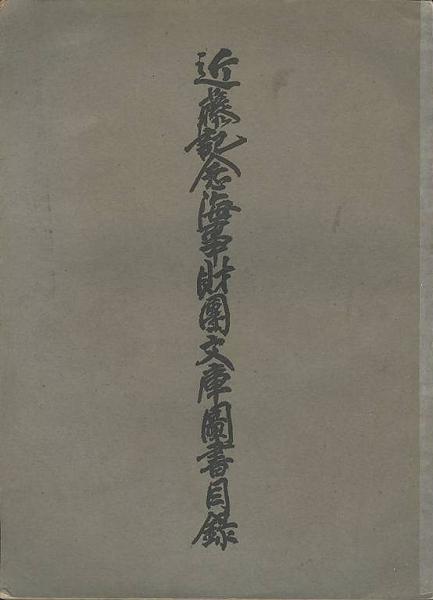 近藤記念海事財團文庫圖書目録